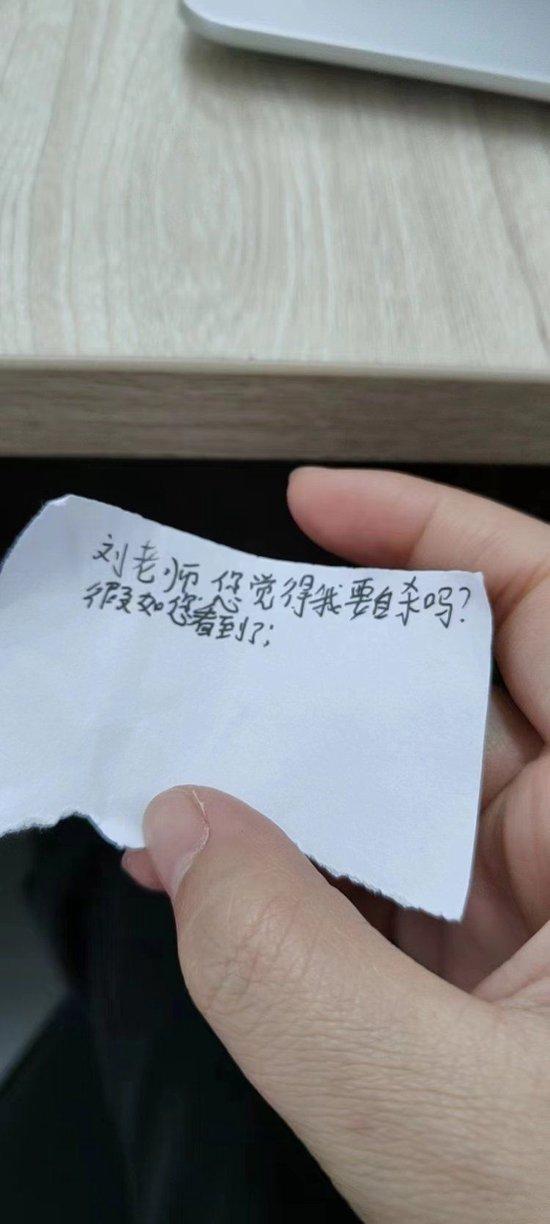 刘老师您觉得我要自杀吗？
假如您看到了；